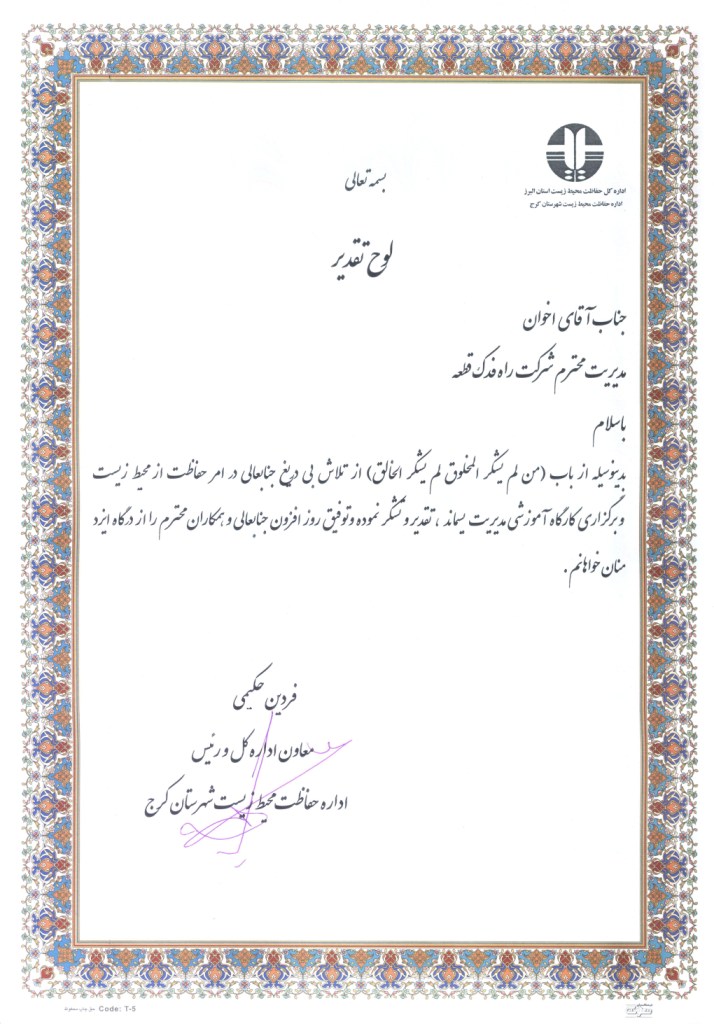 اداره کل حفاظت محیط زیست استان البرز
اداره حفاظت محیط زیست شهرستان کرج
بسمه تعالی
لوح تقدیر
جناب آقای اخوان
مدیریت محترم شرکت راه فدک قطعه
باسلام
بدینوسیله از باب (من لم یشکر المخلوق لم یشکر الخالق) از تلاش بی دریغ جنابعالی در امر حفاظت از محیط زیست
و برگزاری کارگاه آموزشی مدیریت پسماند ، تقدیر و تشکر نموده و توفیق روز افزون جنابعالی و همکاران محترم را از درگاه ایزد
منان خواهانم .
فردین حکیمی
معاون اداره کل و رئیس
اداره حفاظت محیط زیست شهرستان کرج
Code: T-5